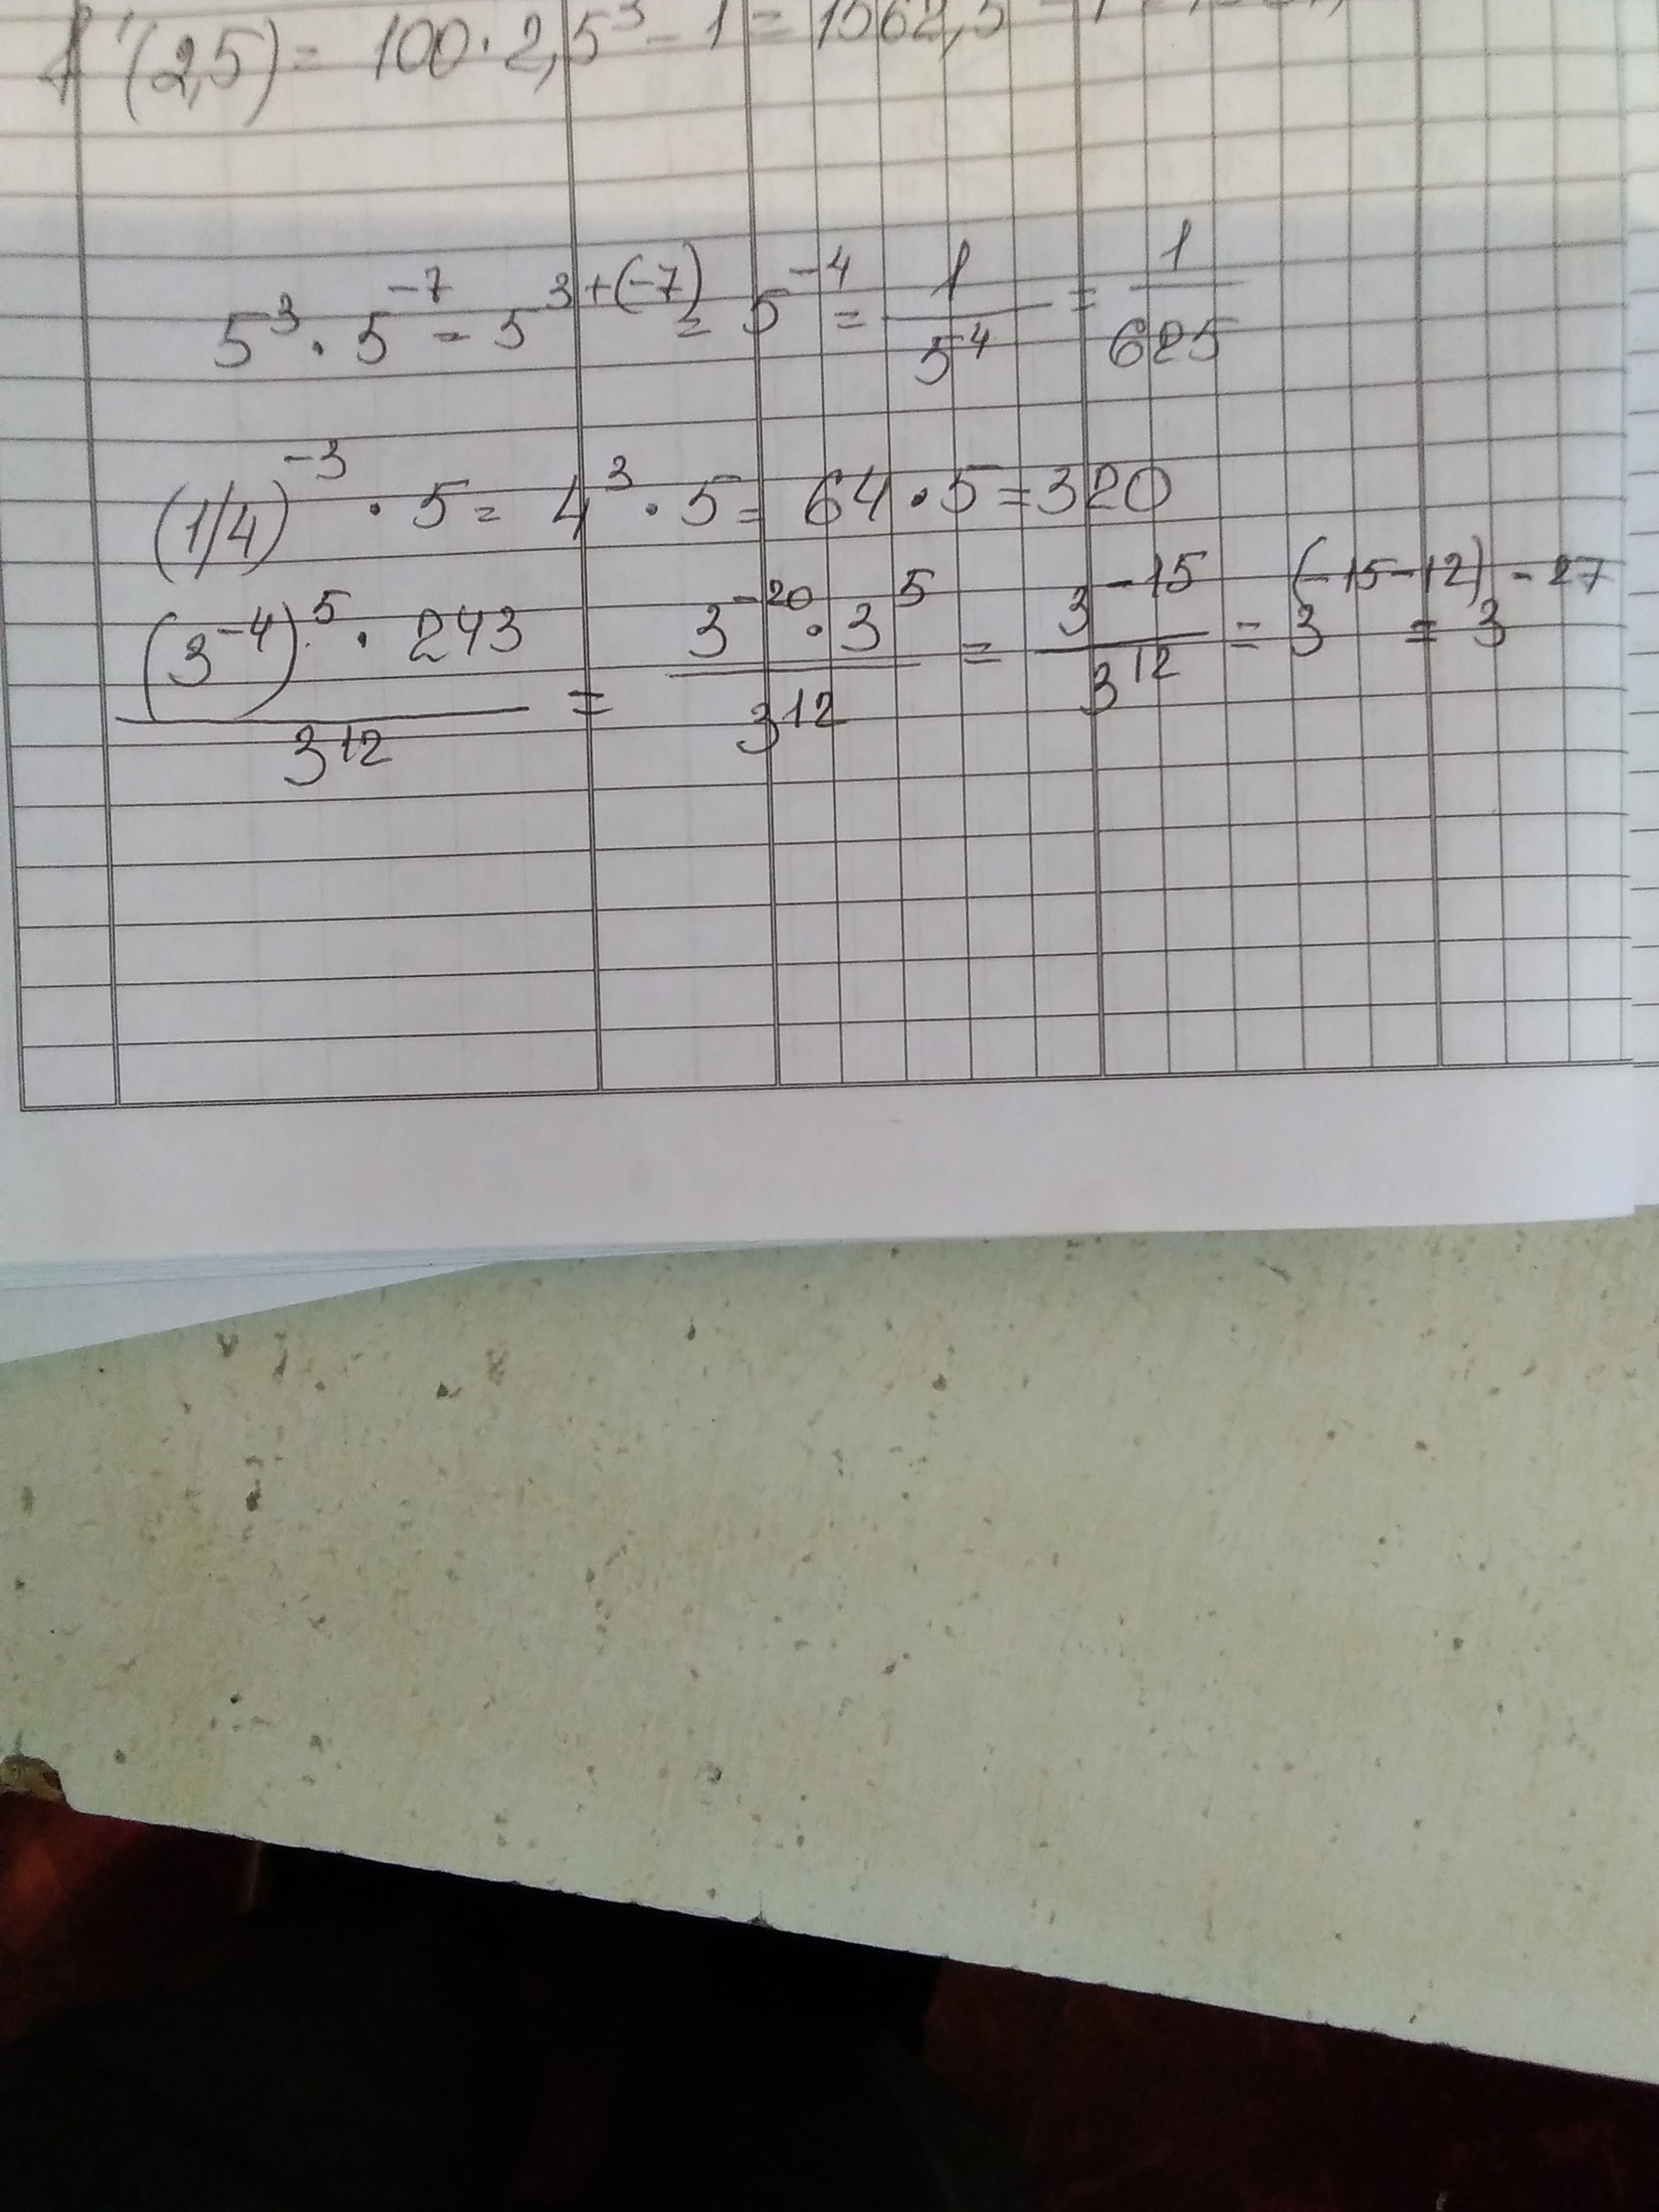 f'(2,5) = 100 · 2,5³ - 1 = 1562,5
5³ · 5⁻⁷ = 5³⁺⁽⁻⁷⁾ = 5⁻⁴ = 1/5⁴ = 1/625
(1/4)⁻³ · 5 = 4³ · 5 = 64 · 5 = 320
(3⁻⁴)⁵ · 243 / 3¹² = 3⁻²⁰ · 3⁵ / 3¹² = 3⁻¹⁵ / 3¹² = 3⁽⁻¹⁵⁻¹²⁾ = 3⁻²⁷